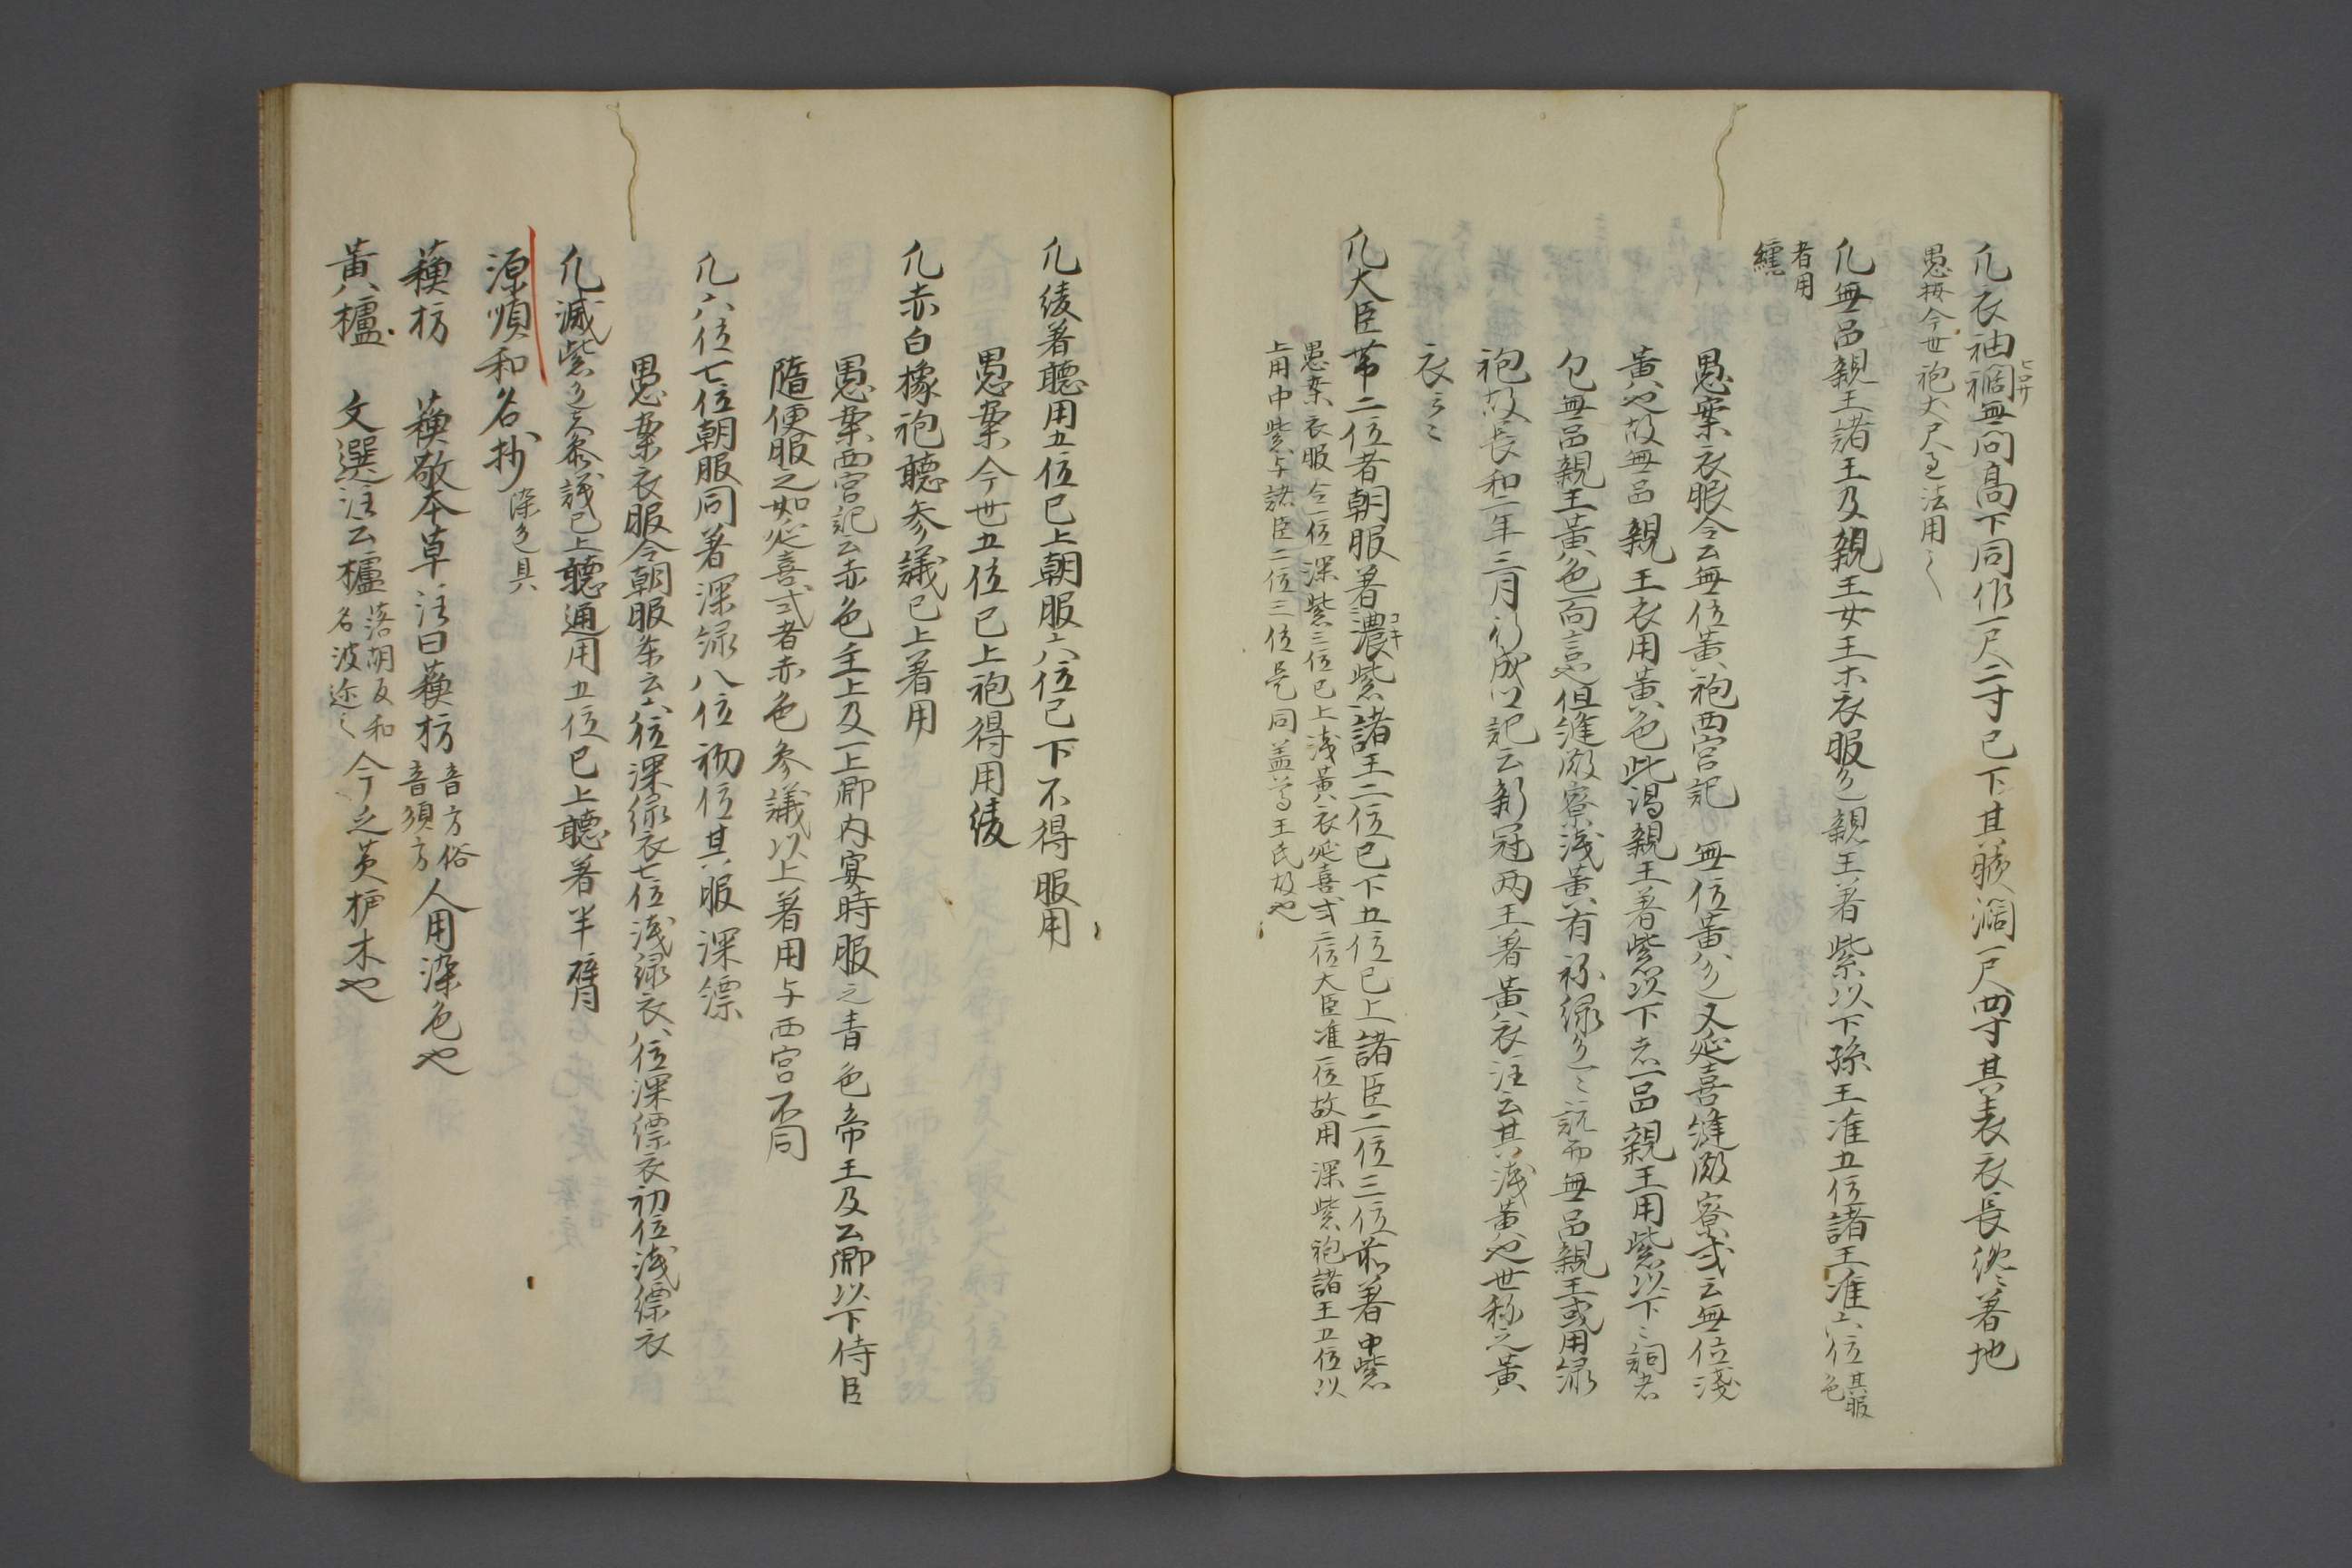 凡衣袖襉無問高下同作一尺二寸已下其腋濶一尺四寸其表衣長纔著地
ヒロサ
愚按今世袍大尺己法用之
凡無品親王諸王及親王女王木衣服色親王著紫以下孫王准五位諸王准六位其服色
者用纁
愚案衣服令云無位黄袍西宮記 無位黄色又延喜縫殿寮式云無位淺
黄也故無品親王衣用黄色此謂親王著紫以下者一品親王用紫以下之詞者
包無品親王黄色而言也但縫殿寮淺黄有称緑色之説而無品親王或用緑
袍故長和二年三月行成卿記云新冠两王著黄衣注云其浅黄也世称之黄
衣云々
凡大臣帯二位者朝服著濃紫諸王二位已下五位已上諸臣二位三位並著中紫
コキ
愚案衣服令一位深紫三位已上浅黄衣延喜式二位大臣准一位故用深紫袍諸王五位以
上用中紫与諸臣二位三位是同盖為王氏故也
凡綾著聴用五位已上朝服六位已下不得服用
愚案今世五位已上袍得用綾
凡赤白橡袍聴参議已上著用
愚案西宮記云赤色主上及一上卿内宴時服之青色帝王及公卿以下侍臣
隨便服之如延喜式者赤色参議以上著用与西宮不同
凡六位七位朝服同著深緑八位初位其服深縹
愚案衣服令朝服条云六位深緑衣七位浅緑衣八位深縹衣初位浅縹衣
凡滅紫色者参議已上聴通用五位已上聴著半臂
源順和名抄 染色具
蘓枋 蘓敬本草注曰蘓枋音方俗音須方人用染色也
黄櫨 文選注云櫨落胡反和名波迩之今之黄栌木也